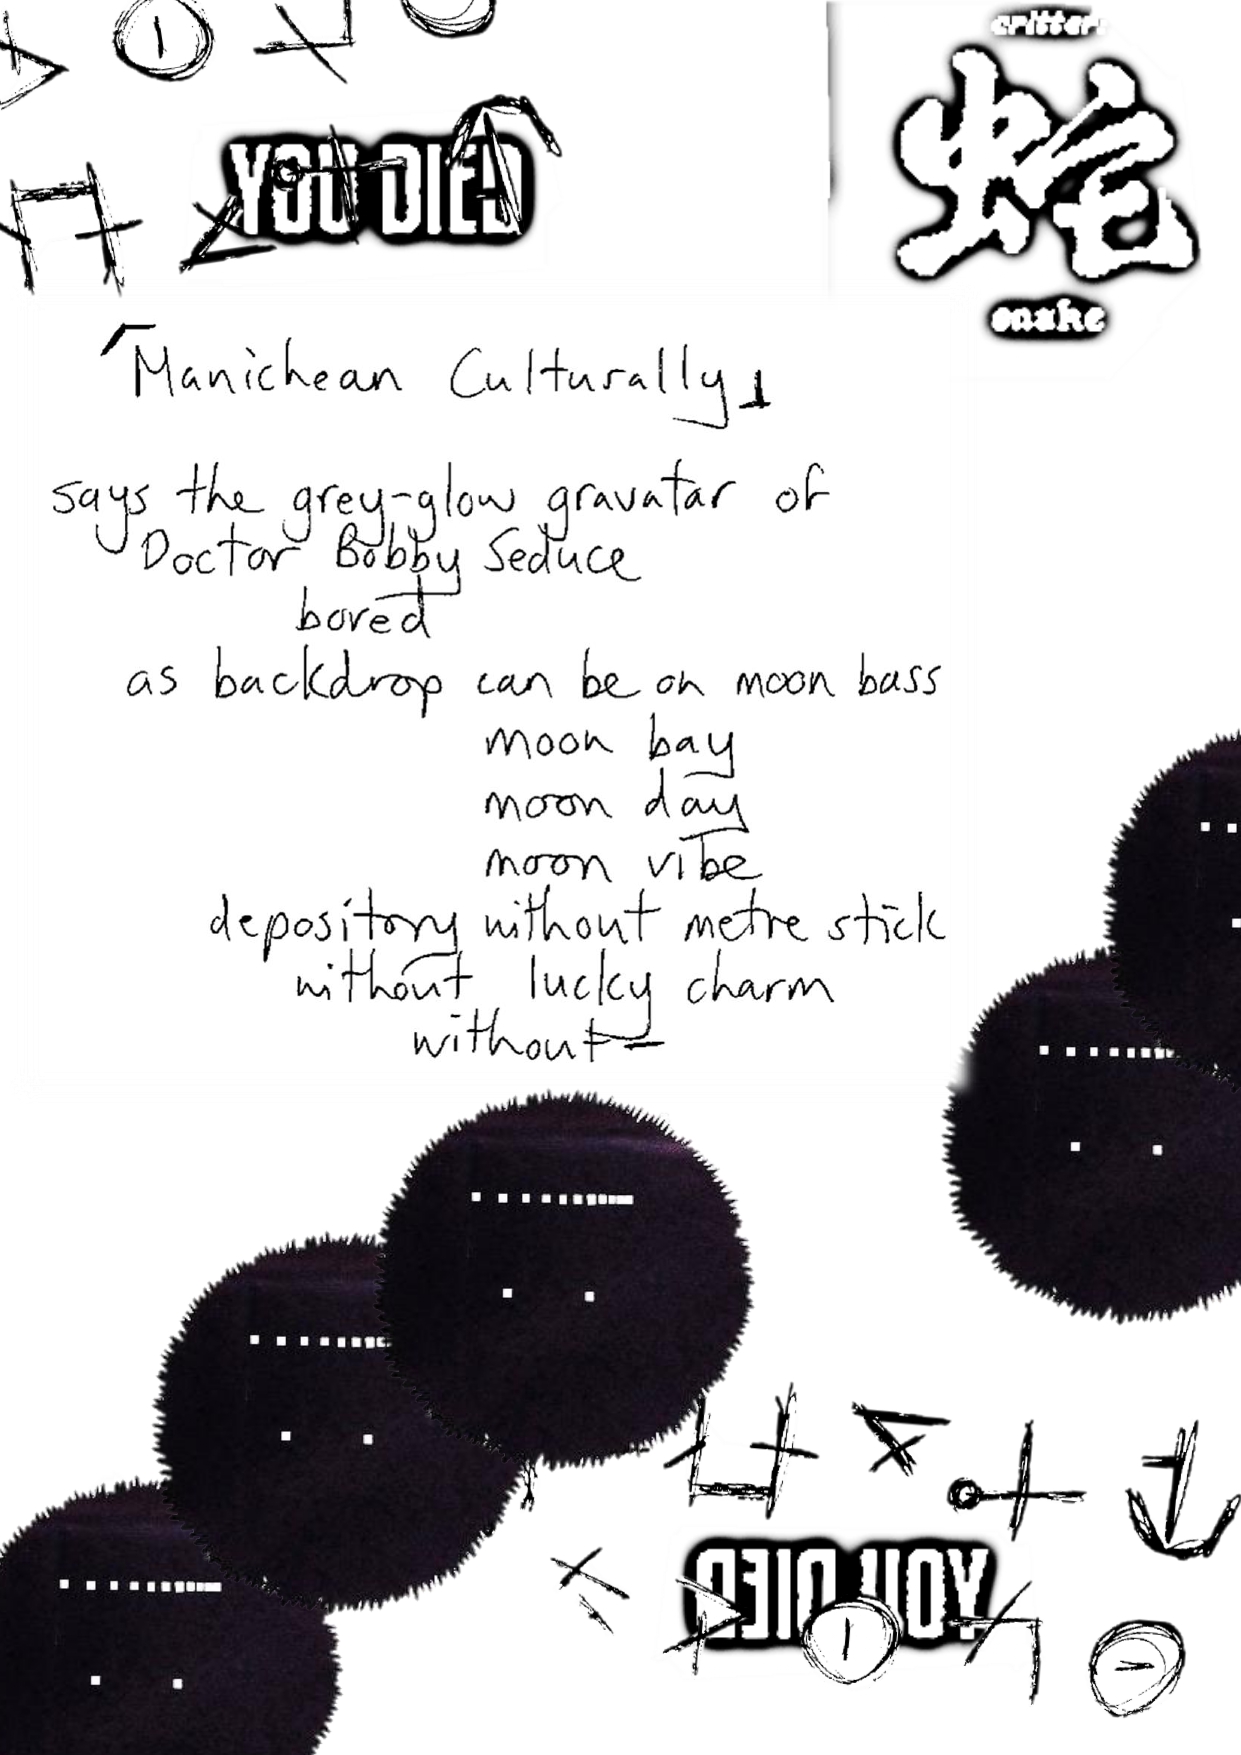 critters
YOU DIED
蛇
snake
「Manichean Culturally」
says the grey-glow gravatar of
Doctor Bobby Seduce
bored
as backdrop can be on moon bass
moon bay
moon day
moon vibe
depository without metre stick
without lucky charm
without—
YOU DIED